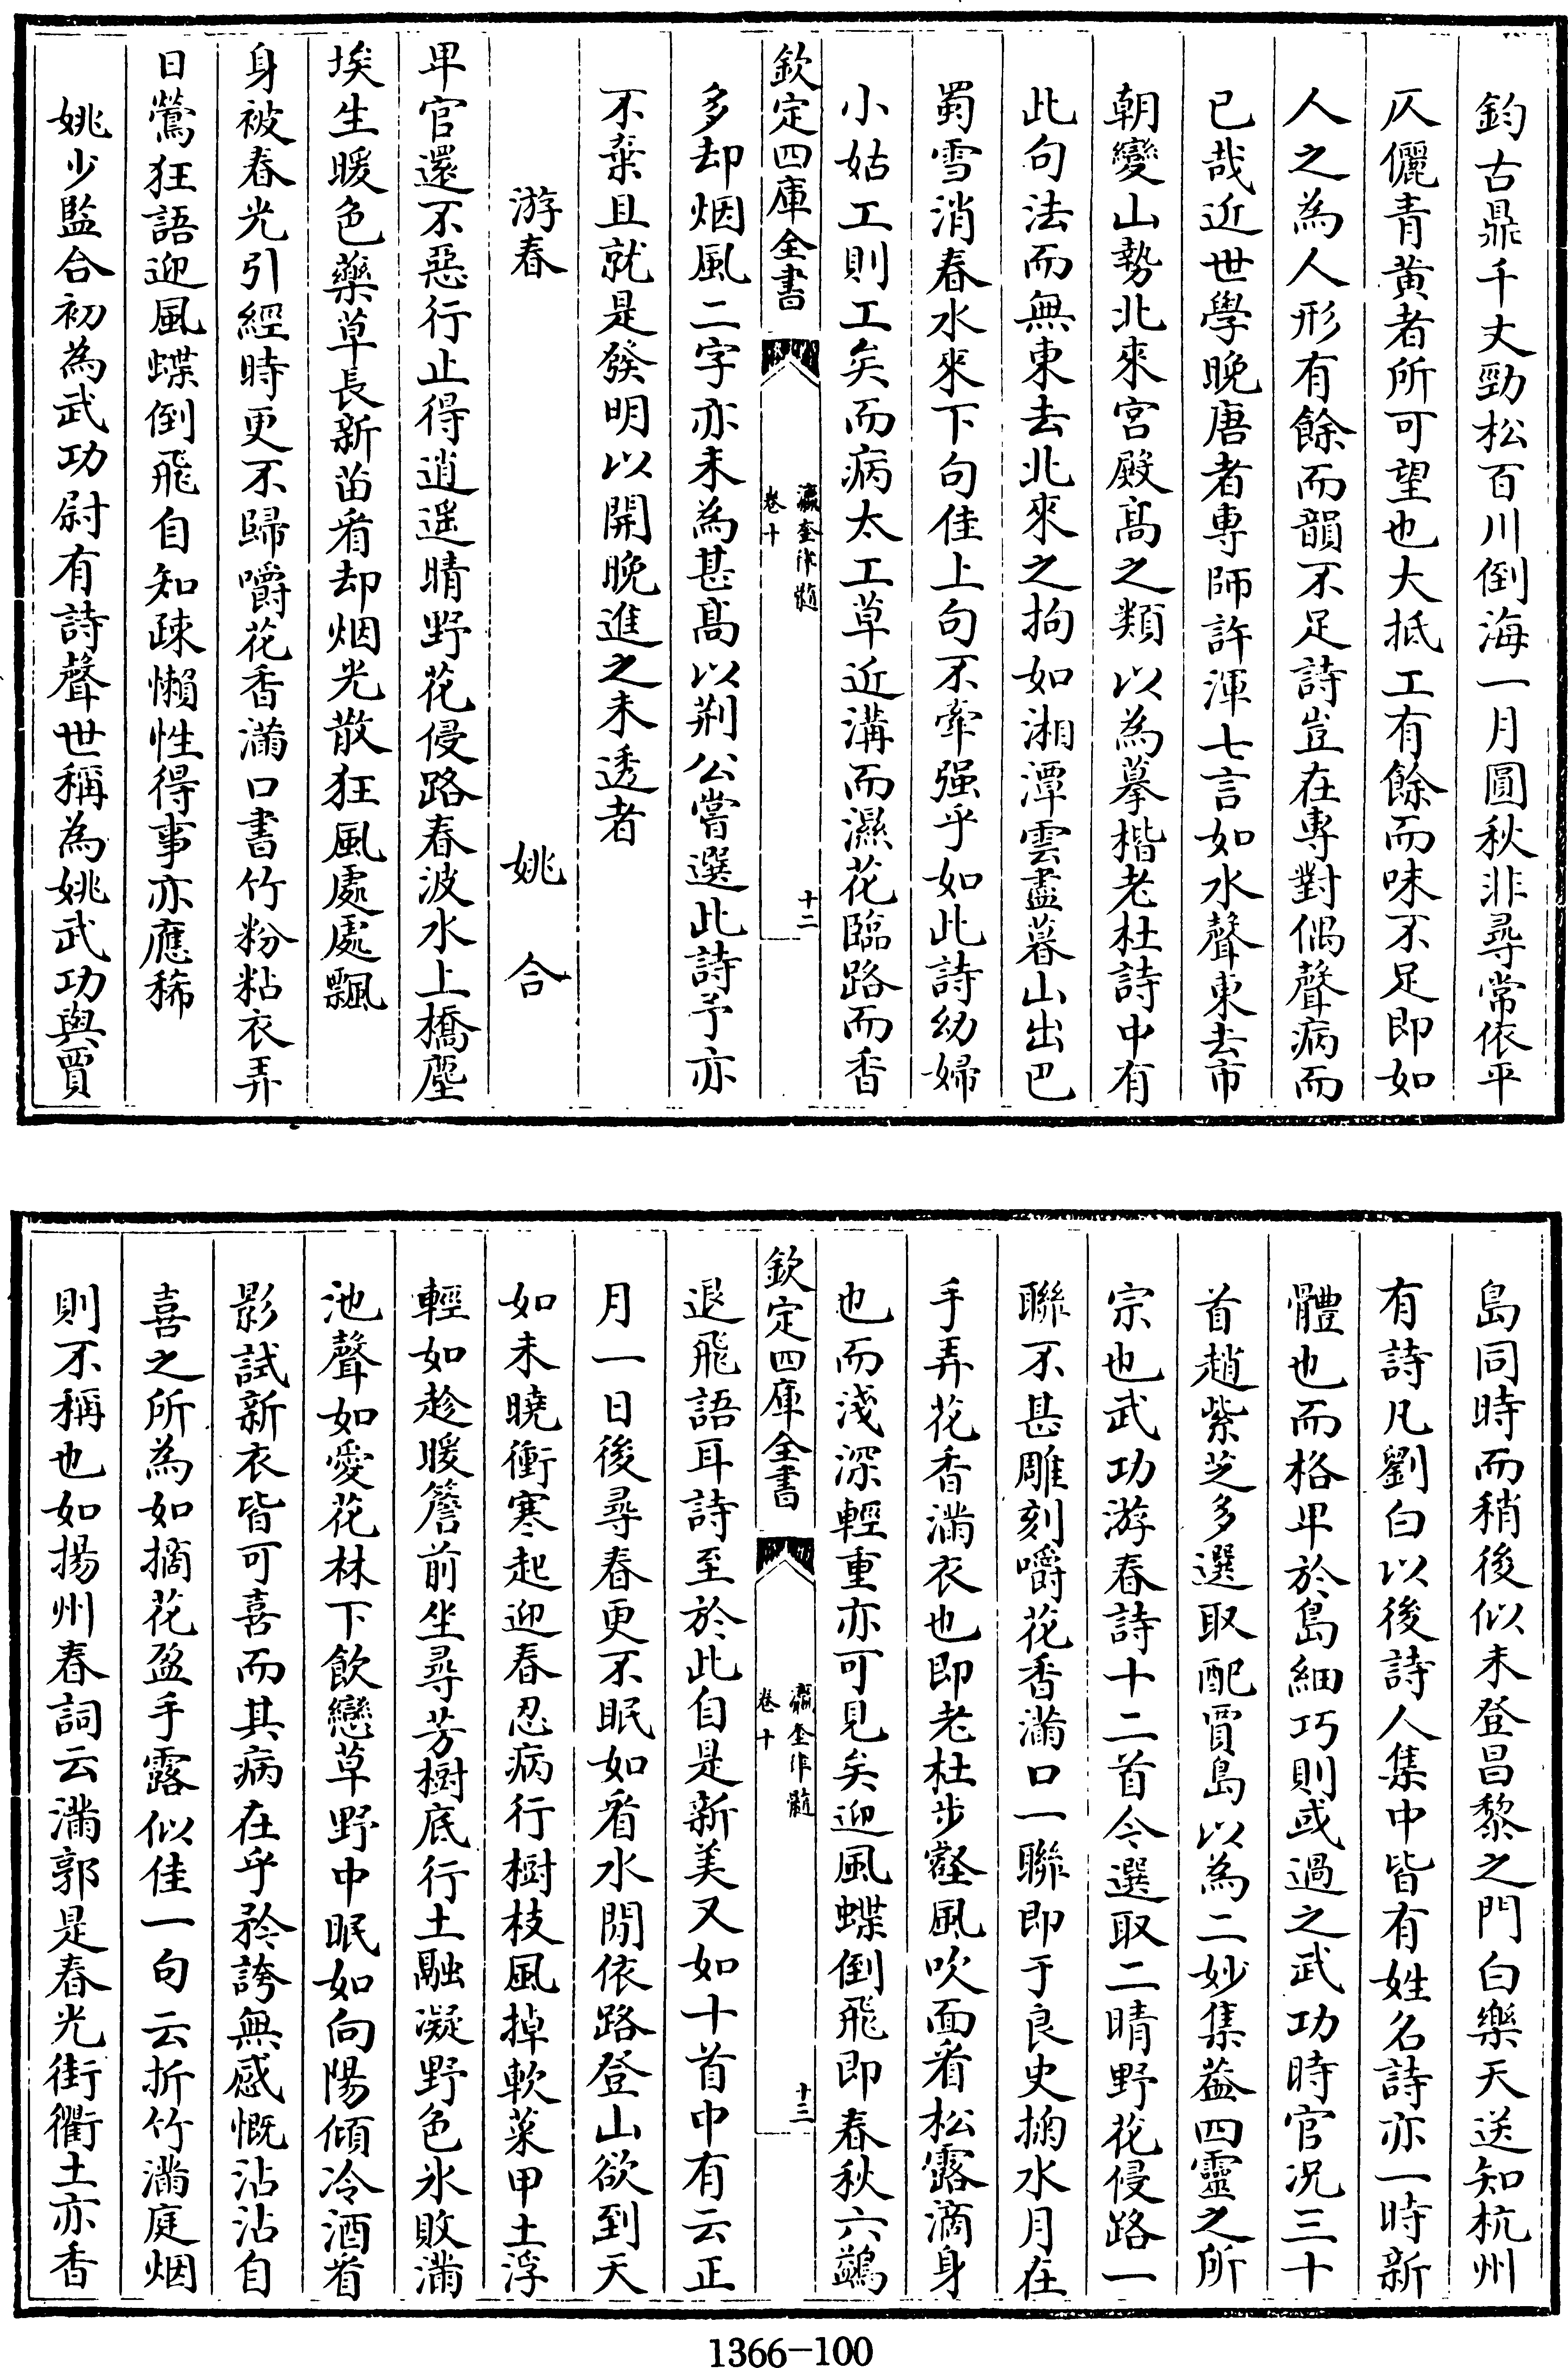 鈞古鼎千丈勁松百川倒海一月圓秋非尋常依平
仄儷青黄者所可望也大抵工有餘而味不足即如
人之為人形有餘而韻不足詩豈在專對偶聲病而
已哉近世學晚唐者專師許渾七言如水聲東去市
朝變山勢北來宮殿髙之類以為摹楷老杜詩中有
此句法而無東去北來之拘如湘潭雲盡暮山出巴
蜀雪消春水來下句佳上句不牽强乎如此詩幼婦
小姑工則工矣而病太工草近溝而濕花臨路而香
欽定四庫全書
瀛奎律髓
卷十
十二
多却烟風二字亦未為甚髙以荆公嘗選此詩予亦
不棄且就是發明以開晚進之未透者
游春 姚合
卑官還不惡行止得逍遥晴野花侵路春波水上橋塵
埃生暖色藥草長新苗看却烟光散狂風處處飄
身被春光引經時更不歸嚼花香滿口書竹粉粘衣弄
日鶯狂語迎風蝶倒飛自知疎懶性得事亦應稀
姚少監合初為武功尉有詩聲世稱為姚武功與賈
島同時而稍後似未登昌黎之門白樂天送知杭州
有詩凡劉白以後詩人集中皆有姓名詩亦一時新
體也而格卑於島細巧則或過之武功時官况三十
首趙紫芝多選取配賈島以為二妙集葢四靈之所
宗也武功游春詩十二首今選取二晴野花侵路一
聯不甚雕刻嚼花香滿口一聯即于良史掬水月在
手弄花香滿衣也即老杜步壑風吹面看松露滴身
也而淺深輕重亦可見矣迎風蝶倒飛即春秋六鷁
欽定四庫全書
瀛奎律髓
卷十
十三
退飛語耳詩至於此自是新美又如十首中有云正
月一日後尋春更不眠如看水閒依路登山欲到天
如未曉衝寒起迎春忍病行樹枝風掉軟菜甲土浮
輕如趁暖簷前坐尋芳樹底行土融凝野色氷敗滿
池聲如愛花林下飲戀草野中眠如向陽傾冷酒看
影試新衣皆可喜而其病在乎矜誇無感慨沾沾自
喜之所為如摘花盈手露似佳一句云折竹滿庭烟
則不稱也如揚州春詞云滿郭是春光街衢土亦香
1366-100